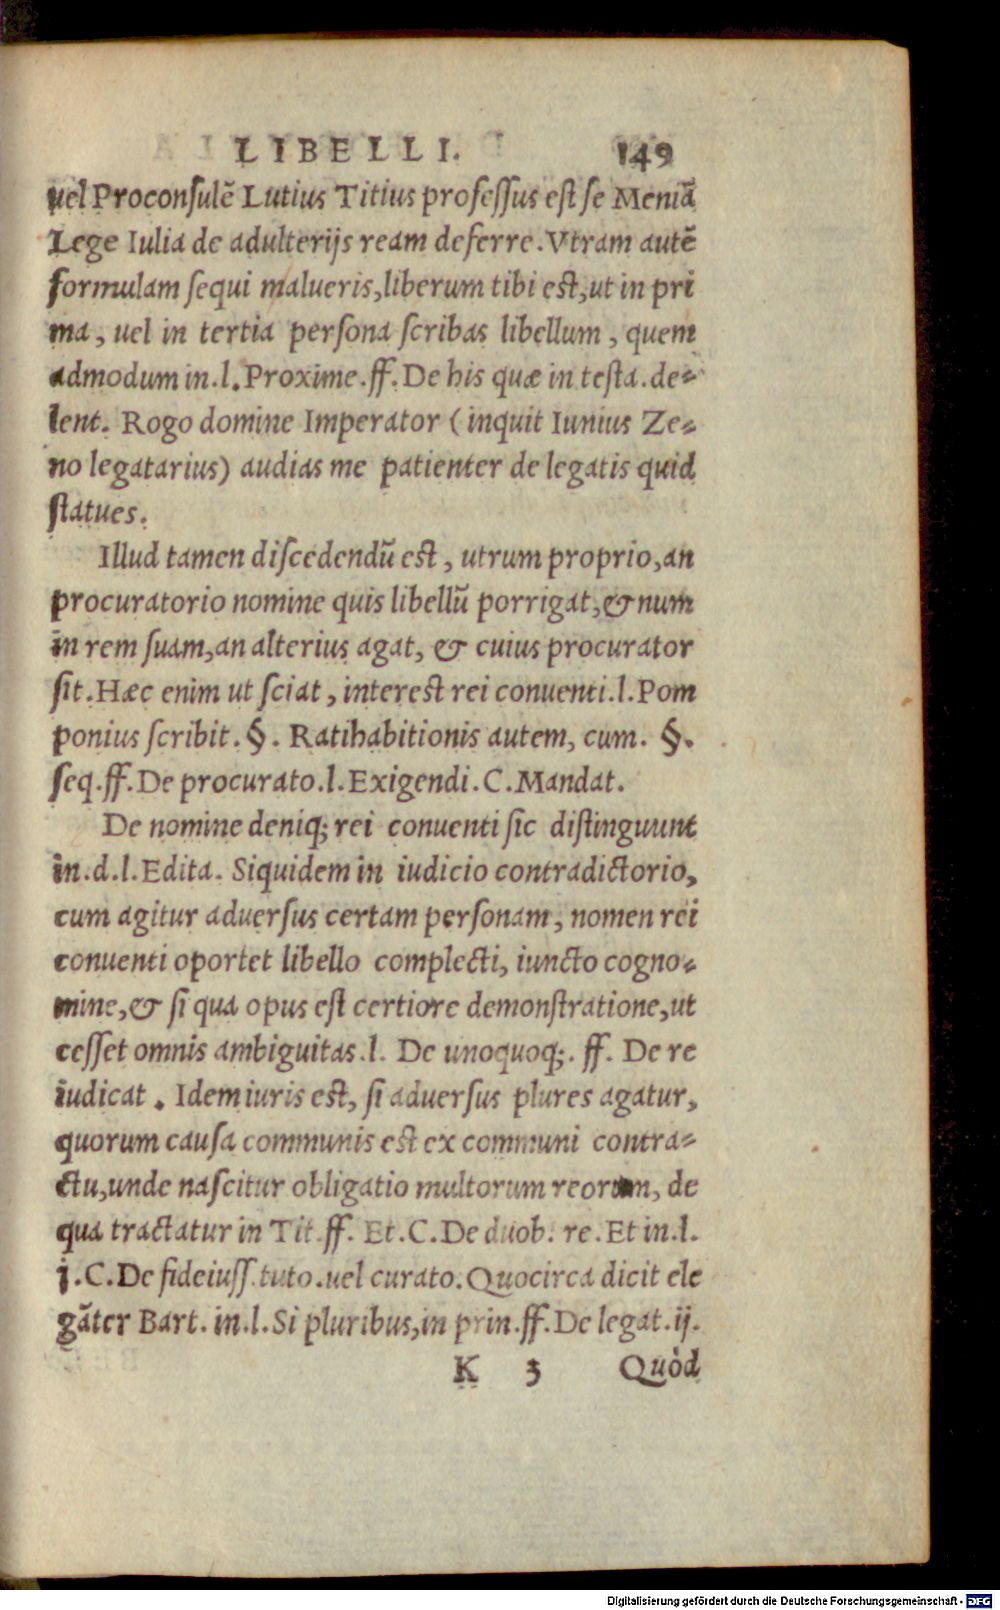 LIBELLI. 149
uel Proconsulẽ Lutius Titius professus est se Meniã
Lege Iulia de adulterijs ream deferre. Vtram autẽ
formulam sequi malueris, liberum tibi est, ut in pri
ma, uel in tertia persona scribas libellum, quem
admodum in.l. Proxime.ff. De his quæ in testa.de-
lent. Rogo domine Imperator (inquit Iunius Ze-
no legatarius) audias me patienter de legatis quid
statues.
Illud tamen discedendũ est, utrum proprio, an
procuratorio nomine quis libellũ porrigat, & num
in rem suam, an alterius agat, & cuius procurator
sit. Hæc enim ut sciat, interest rei conuenti.l. Pom
ponius scribit. §. Ratihabitionis autem, cum. §.
seq.ff. De procurato.l. Exigendi. C. Mandat.
De nomine deniq; rei conuenti sic distinguunt
in.d.l. Edita. Siquidem in iudicio contradictorio,
cum agitur aduersus certam personam, nomen rei
conuenti oportet libello complecti, iuncto cogno-
mine, & si qua opus est certiore demonstratione, ut
cesset omnis ambiguitas.l. De unoquoq;. ff. De re
iudicat. Idem iuris est, si aduersus plures agatur,
quorum causa communis est ex communi contra-
ctu, unde nascitur obligatio multorum reorum, de
qua tractatur in Tit.ff. Et.C. De duob. re. Et in.l.
j.C. De fideiuss.tuto.uel curato. Quocirca dicit ele
gãter Bart. in.l. Si pluribus, in prin.ff. De legat.ij.
K 3 Quòd
Digitalisierung gefördert durch die Deutsche Forschungsgemeinschaft - DFG